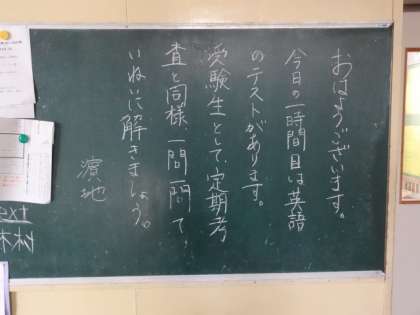 おはようございます。
今日の一時間目は英語
のテストがあります。
受験生として、定期考
査と同様、一問一問て
いねいに解きましょう。
濱地
ext